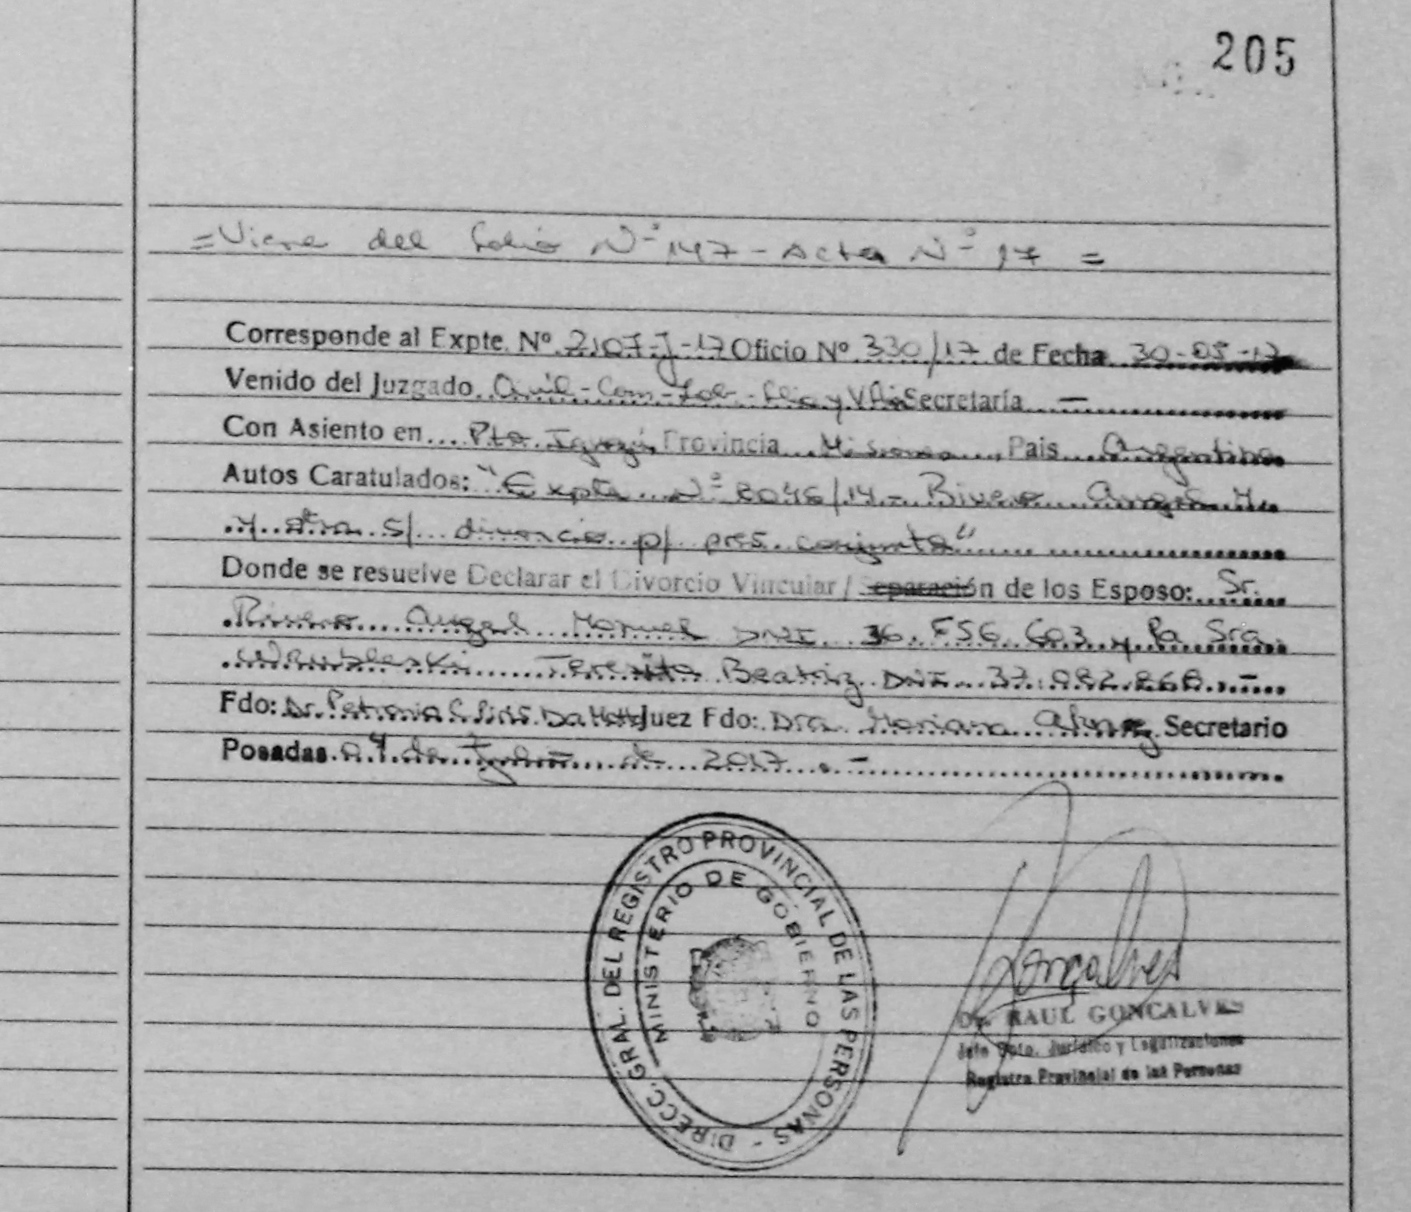 205
=Viene del folio Nº 147 - Acta Nº 17 =
Corresponde al Expte. Nº 2107-J-17 Oficio Nº 330/17 de Fecha 30-05-17
Venido del Juzgado Civil-Com-Lab-Flia y Secretaría -
Con Asiento en Pto Iguazú Provincia Misiones, País Argentina
Autos Caratulados: "Expte Nº 8046/14 - Rivero Angel M.
y otra s/ divorcio p/ pres. conjunta"
Donde se resuelve Declarar el Divorcio Vincular / Separación de los Esposo: Sr.
Rivero Angel Manuel DNI 36. 603 y la Sra.
Teresita Beatriz DNI 37.082.868.-
Fdo: Dr. Juez Fdo: Dra. Mariana Secretario
Posadas a 4 de de 2017.-
DIRECC. GRAL. DEL REGISTRO PROVINCIAL DE LAS PERSONAS -
MINISTERIO DE GOBIERNO
Gonçalves
Dr. RAUL GONCALVES
Jefe Dpto. Jurídico y Legalizaciones
Registro Provincial de las Personas